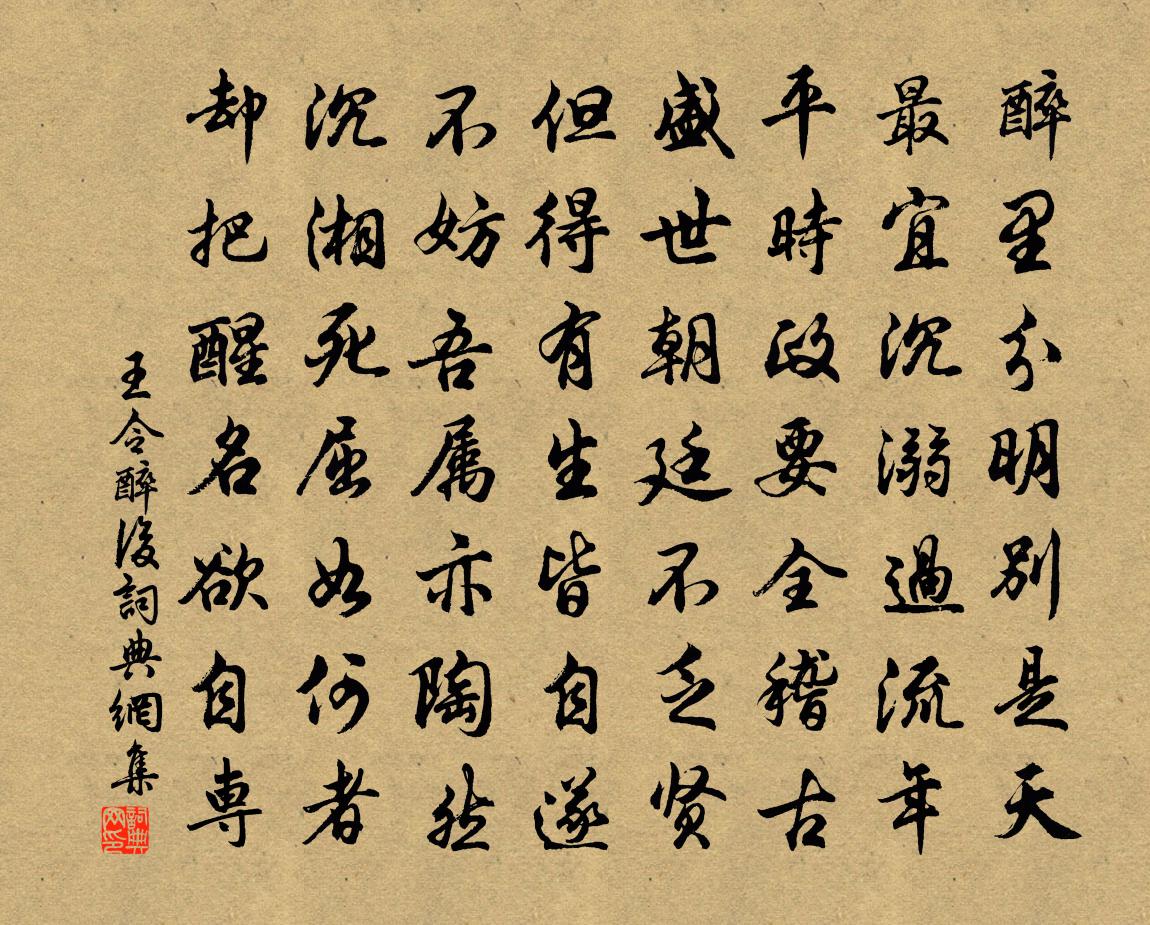 醉里分明别是天
最宜沉溺過流年
平時政要全稽古
盛世朝廷不乏贤
但得有生皆自遂
不妨吾属亦陶然
沉湘死屈如何者
却把醒名欲自専
王令醉後詞典網集
詞典網印